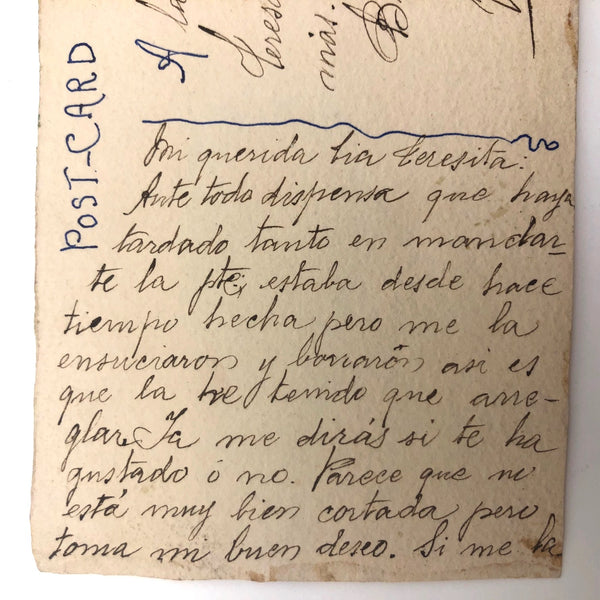 POST-CARD
A la
Teresi
más.
Mi querida tia Teresita:
Ante todo dispensa que haya
tardado tanto en mandar-
te la pte, estaba desde hace
tiempo hecha pero me la
ensuciaron y borraron asi es
que la he tenido que arre-
glar. Ya me dirás si te ha
gustado ó no. Parece que no
está muy bien cortada pero
toma mi buen deseo. Si me ha